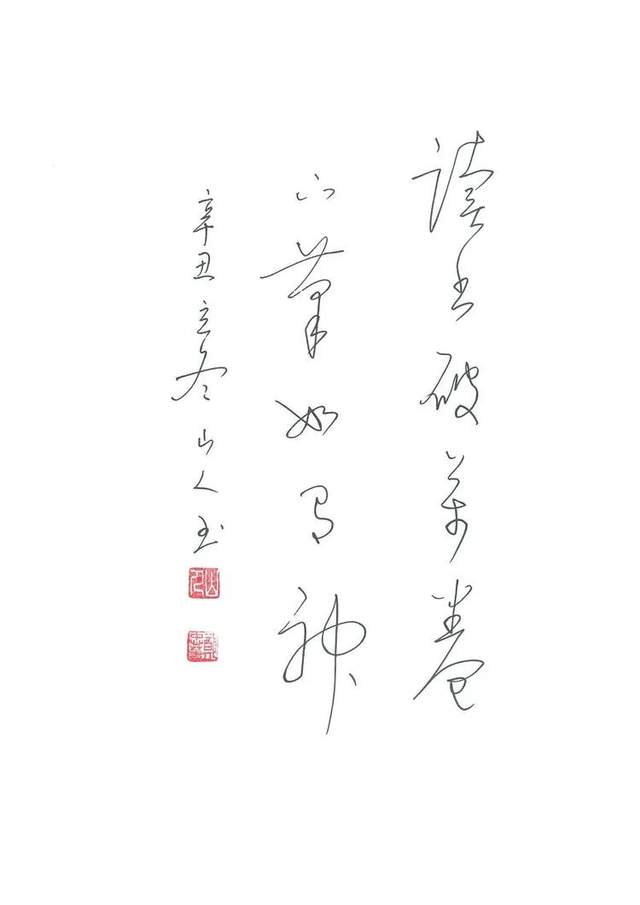 讀書破萬卷
下筆如有神
辛丑立冬山人